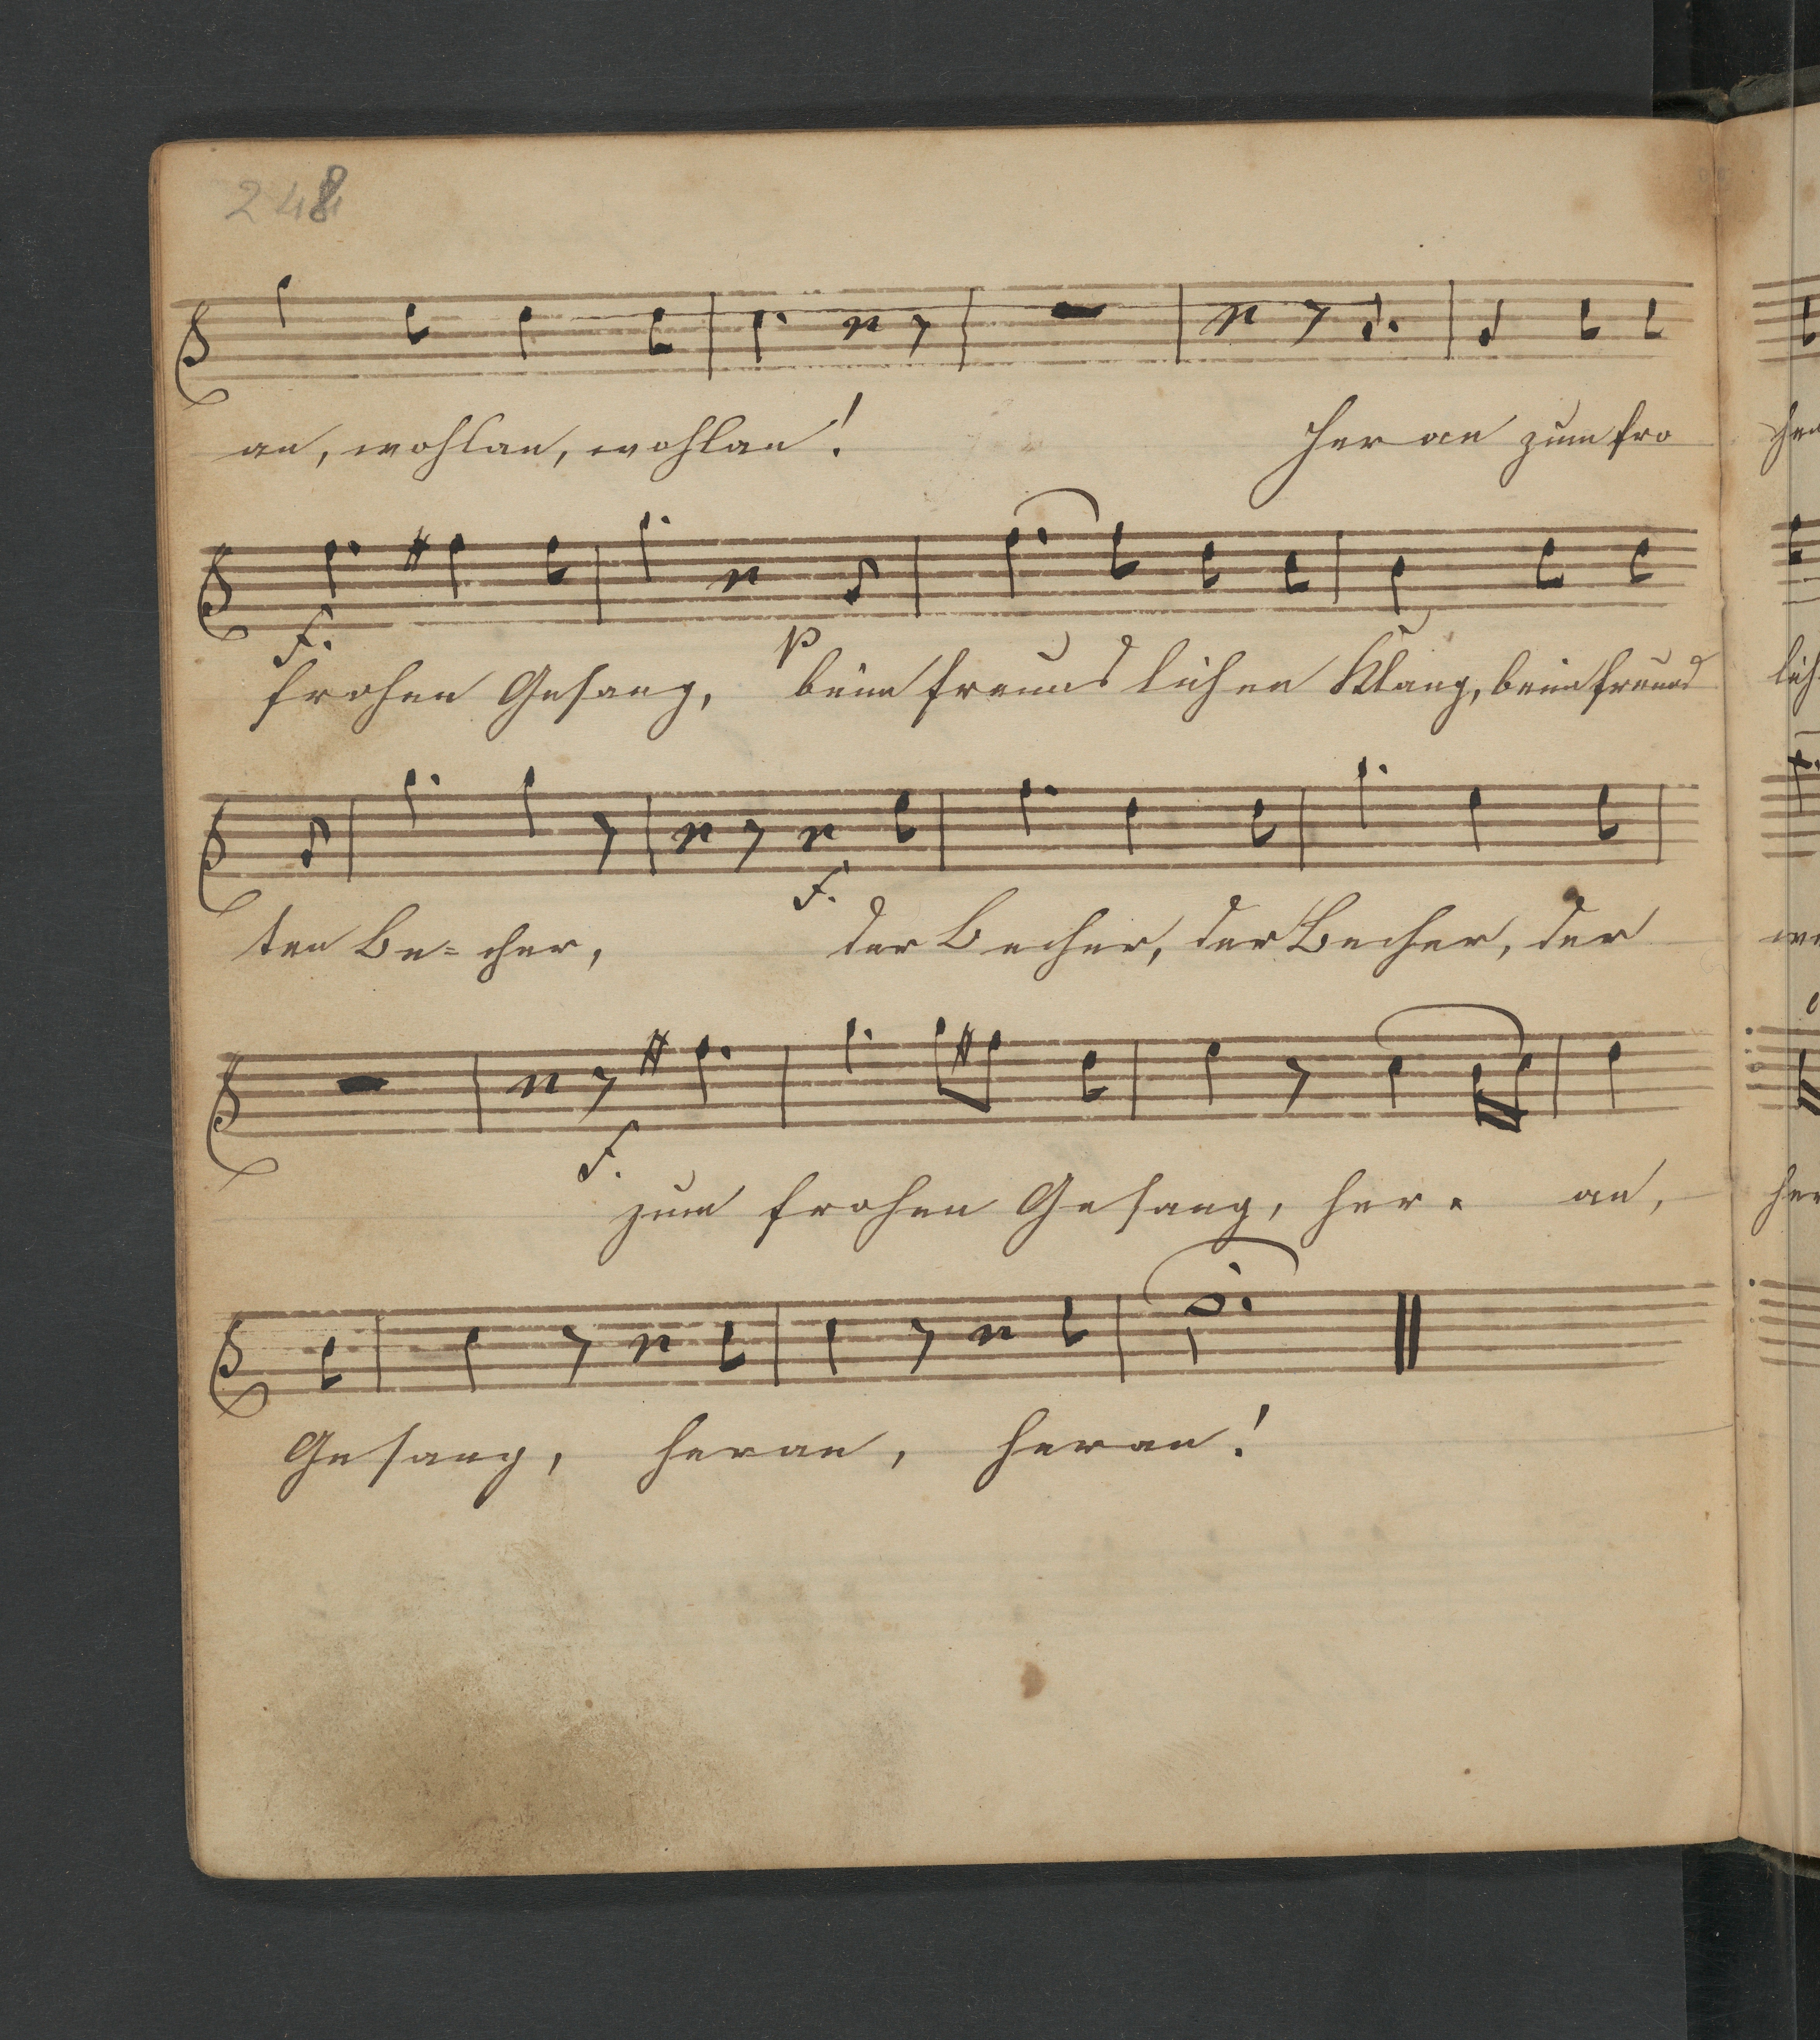 248
an, wohlan, wohlan! heran zum fro
f. p
frohen Gesang, beim freundlichen Klang, beim freund
f.
ten Be=cher, der Becher, der Becher, der
f.
zum frohen Gesang, her- an,
Gesang, heran, heran!